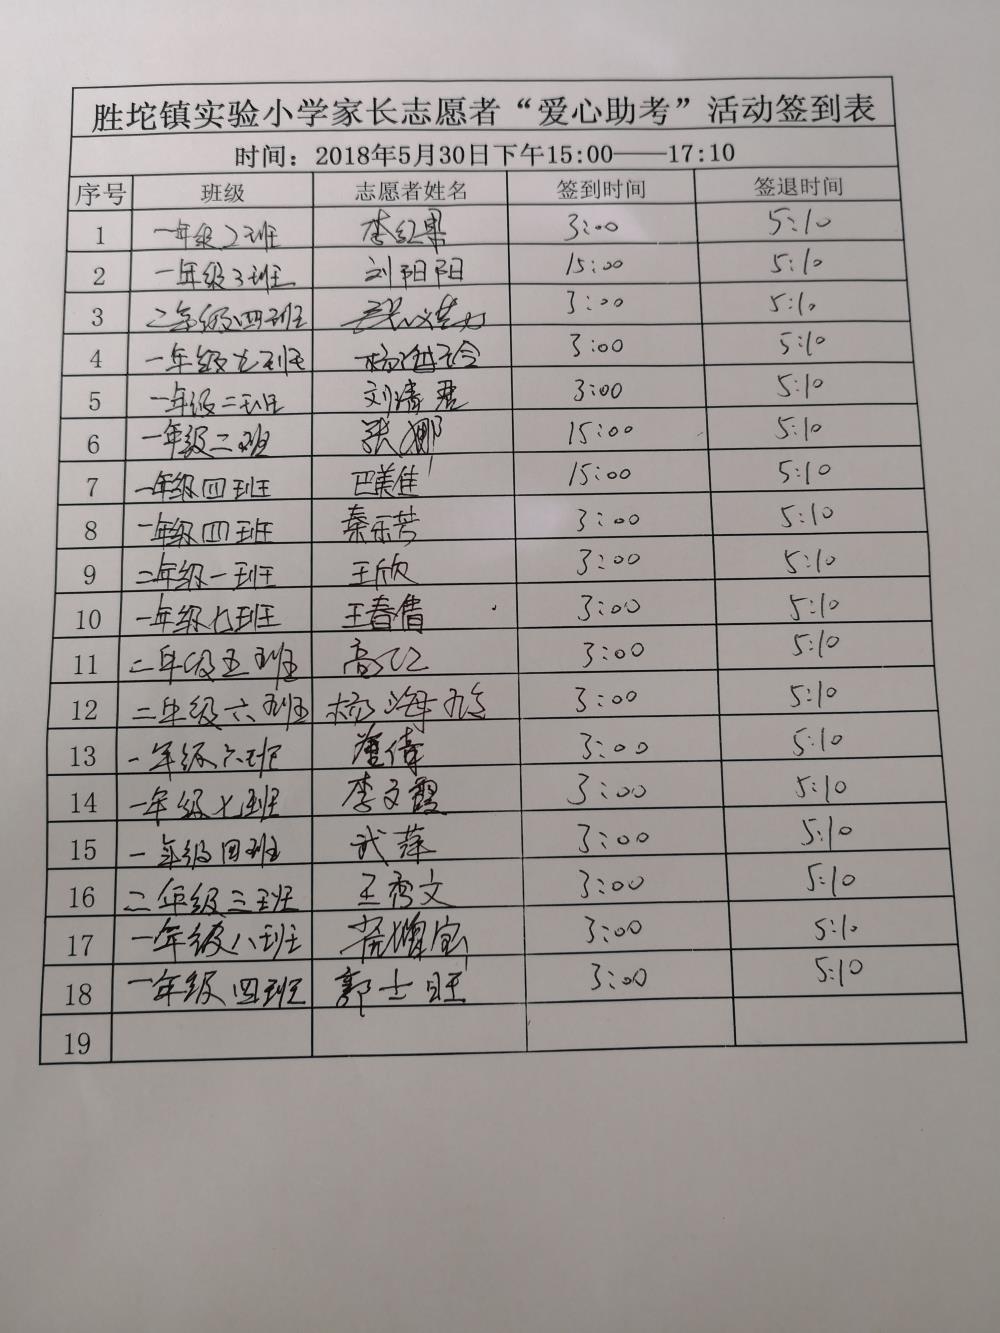 胜坨镇实验小学家长志愿者“爱心助考”活动签到表
时间：2018年5月30日下午15:00——17:10
序号 班级 志愿者姓名 签到时间 签退时间
1 一年级2班 李红果 3:00 5:10
2 一年级3班 刘阳阳 15:00 5:10
3 二年级四班 3:00 5:10
4 一年级七班 3:00 5:10
5 一年级二班 刘清君 3:00 5:10
6 一年级二班 张娜 15:00 5:10
7 一年级四班 巴美佳 15:00 5:10
8 一年级四班 秦乐芳 3:00 5:10
9 二年级一班 王欣 3:00 5:10
10 一年级七班 王春倩 3:00 5:10
11 二年级五班 高 3:00 5:10
12 二年级六班 杨海 3:00 5:10
13 一年级六班 3:00 5:10
14 一年级七班 李文霞 3:00 5:10
15 一年级四班 武萍 3:00 5:10
16 二年级三班 王秀文 3:00 5:10
17 一年级八班 3:00 5:10
18 一年级四班 郭士旺 3:00 5:10
19